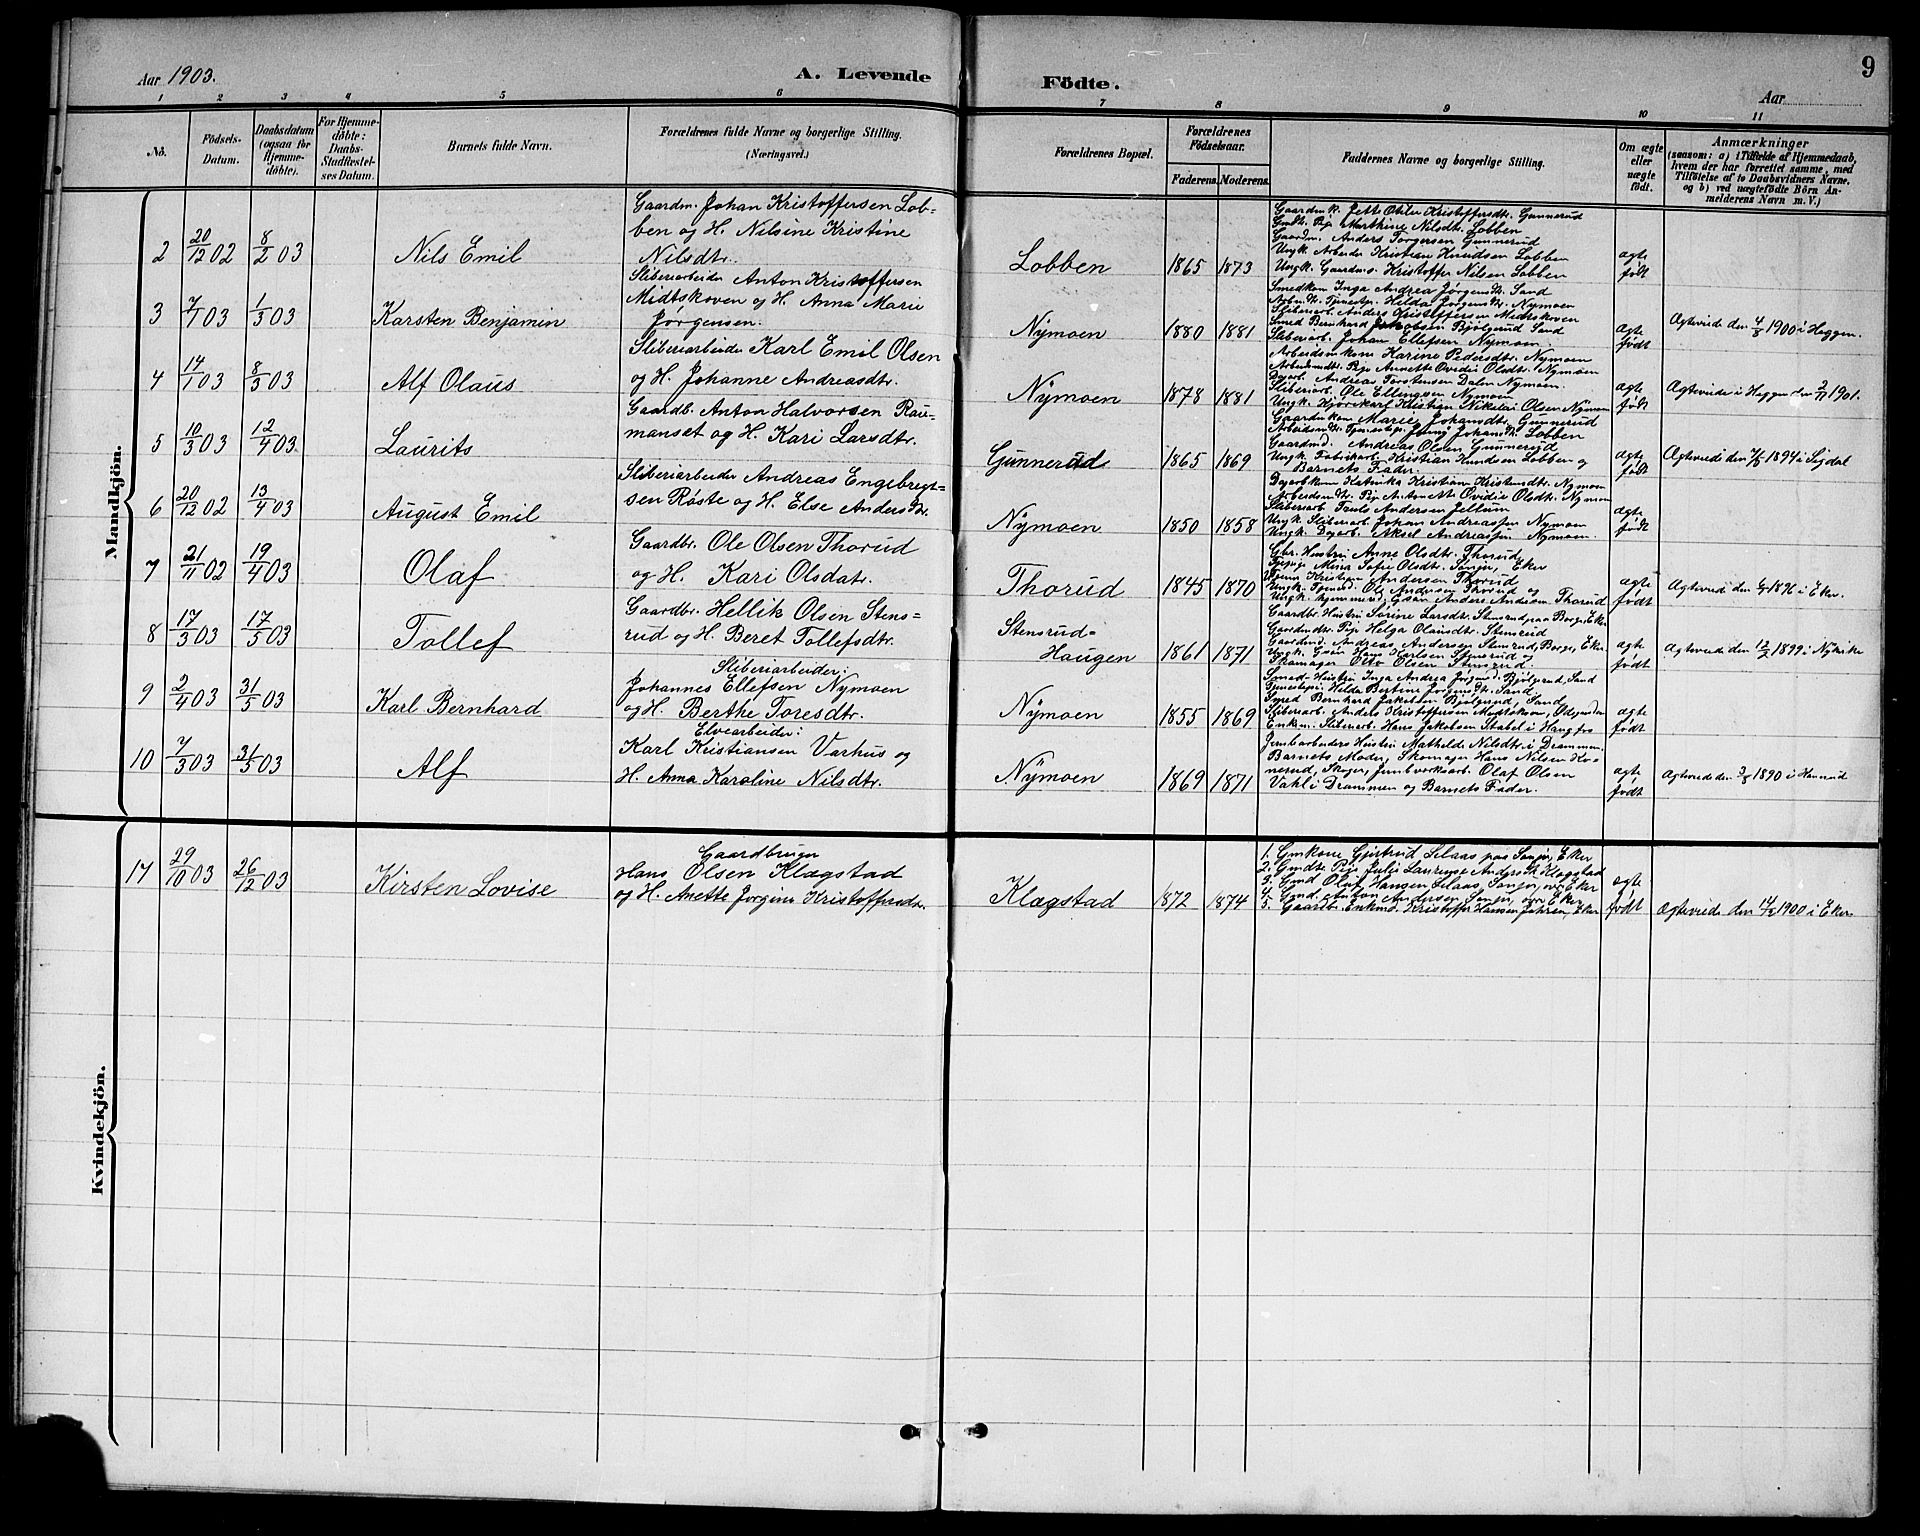 Aar 1903.
A. Levende
Födte.
Aar
9
1 2 3 4 5 6 7 8 9 10 11
No.
Födsels-
Datum.
Daabsdatum
(ogsaa for
Hjemme-
døbte).
For Hjemme-
døbte:
Daabs-
Stadfæstel-
ses Datum.
Barnets fulde Navn.
Forældrenes fulde Navne og borgerlige Stilling.
(Næringsvei.)
Forældrenes Bopæl.
Forældrenes
Födselsaar.
Faderens. Moderens.
Faddernes Navne og borgerlige Stilling.
Om ægte
eller
uægte
født.
Anmærkninger
(saasom: a) i Tilfælde af Hjemmedaab,
hvem der har forrettet samme, med
Tilføielse af to Daabsvidners Navne,
og b) ved uægtefødte Börn An-
melderens Navn m. V.)
Mandkjön.
2 20/12 02 8/2 03 Nils Emil
Gaardm. Johan Kristoffersen Lob-
ben og H. Nilsine Kristine
Nilsdtr.
Lobben 1865 1873
Gaardmk. Jette Otilie Kristoffersdtr. Gunnerud
Gmdt. Pige Marthine Nilsdtr. Lobben
Gaardm. Anders Torgersen Gunnerud
Ungk. Arbeider Kristian Knudsen Lobben
Ungk. Gaardm.s. Kristoffer Nilsen Lobben
ægte
født
3 7/1 03 1/3 03 Karsten Benjamin
Sliberiarbeider Anton Kristoffersen
Midtskoven og H. Anna Marie
Jørgensen.
Nymoen 1880 1881
Smedkom Inga Andrea Jørgensdtr. Sand
Arbm.dtr. Tjenestep. Helda Jørgensdtr. Nymoen
Sliberiarb. Anders Kristoffersen Midtskoven
Smed Bernhard Jakobsen Bjølgerud Sand
Sliberiarb. Johan Ellefsen Nymoen.
ægte
født
Ægteviede den 4/8 1900 i Heggen.
4 14/1 03 8/3 03 Alf Olaus
Sliberiarbeider Karl Emil Olsen
og H. Johanne Andreasdtr.
Nymoen 1878 1881
Arbeidsmkone Karine Pedersdtr. Nymoen
Arbeidmdtr. Pige Annette Ovidie Olsdtr. Nymoen
Dagarb. Andreas Torstensen Dalen Nymoen.
Sliberiarb. Ole Ellingsen Nymoen
Ungk. Kjørekarl Kristian Nikolai Olsen Nymoen
ægte
født
Ægteviede i Heggen den 2/11 1901.
5 10/3 03 12/4 03 Laurits
Gaardb. Anton Halvorsen Rau-
manset og H. Kari Larsdtr.
Gunnerud 1865 1869
Gaardmkom Marie Johansdtr. Gunnerud
Arbeidsmdtr. Tjenestep. Jenny Johansdtr. Lobben
Gaardmd. Andreas Olsen Gunnerud
Ungk. Fabrikarb. Kristian Knudsen Lobben og
Barnets Fader.
ægte
født
Ægteviede 1894 i Sigdal
6 20/12 02 13/4 03 August Emil
Sliberiarbeider Andreas Engebregt-
sen Røste og H. Else Andersdtr.
Nymoen 1850 1858
Dagarbkom Katrinka Kristiane Kristiansdtr. Nymoen
Arbeidsmdtr. Pige Antonette Ovidie Olsdtr. Nymoen
Sliberiarb. Truls Andersen Jellum
Ungk. Sliberiarb. Johan Andreassen Nymoen
Ungk. Dagarb. Aksel Andreassen Nymoen.
ægte
født
7 21/11 02 19/4 03 Olaf
Gaardbr. Ole Olsen Thorud
og H. Kari Olsdatr.
Thorud 1845 1870
Gbr. Hustru Anne Olsdtr. Thorud
Tjepige Mina Sofie Olsdtr. Sønju, Eker
Kristian Andersen Thorud
Ungk. Tjenesd. Ole Andersen Thorud og
Ungk. hjemmevd. Gsøn Anders Andersen Thorud
ægte
født
Ægteviede den 1896 i Eker.
8 17/3 03 17/5 03 Tollef
Gaardbr. Hellik Olsen Stens-
rud og H. Beret Tollefsdtr.
Stensrud-
Haugen 1861 1871
Gaardbr. Hustru Sørine Larsdtr. Stensrud paa Borge, Eker
Gaardmdtr. Pige Helga Olausdtr. Stensrud
Gaardmd. Andreas Andersen Stensrud, Borge, Eker
Ungk. Gsøn Hans Karlsen Stensrud og
Skomager Otto Olsen Stensrud.
ægte
født
Ægteviede den 12/2 1899 i Nykirke
9 2/4 03 31/5 03 Karl Bernhard
Sliberiarbeider;
Johannes Ellefsen Nymoen
og H. Berthe Toresdtr.
Nymoen 1855 1869
Smed-Hustru Inga Andrea Jørgensd. Bjølgerud, Sand
Tjenestepi. Hilda Bertine Jørgensdtr. Sand
Smed Bernhard Jakobsen Bjølgerud, Sand
Sliberiarb. Anders Kristoffersen Midtskov, Ødegaarden
Enkem. Sliberiarb. Hans Jakobsen Stabel i Haugfos
ægte
født
10 7/3 03 31/5 03 Alf
Elvearbeider:
Karl Kristiansen Varhus og
H. Anna Karoline Nilsdtr.
Nymoen 1869 1871
Jernbarbeiders Hustru Mathilde Nilsdtr. i Drammen.
Barnets Moder, Skomager Hans Nilsen Ko-
nerud, Skoger, Jernbverksarb. Olaf Olsen
Vahl i Drammen og Barnets Fader.
ægte
født
Ægteviede den 3/8 1890 i Hannevd
Kvindekjön.
17 29/10 03 26/12 03 Kirsten Lovise
Gaardbruger
Hans Olsen Klægstad
og H. Anette Jørgine Kristoffersdtr.
Klægstad 1872 1874
1. Gmkone Gjertrud Selaas paa Sønju, Eker
2. Gmdtr. Pige Julie Laurense Andersdtr. Klagstad
3. Gmd Oluf Hansen Selaas, Sønju, øvre Eker
4. Gmd. Anton Andersen Sønju, øvre Eker
5. Gaardb. Enkmd. Kristoffer Hansen Juhren, Eker
ægte
født
Ægteviede den 14/2 1900 i Eker